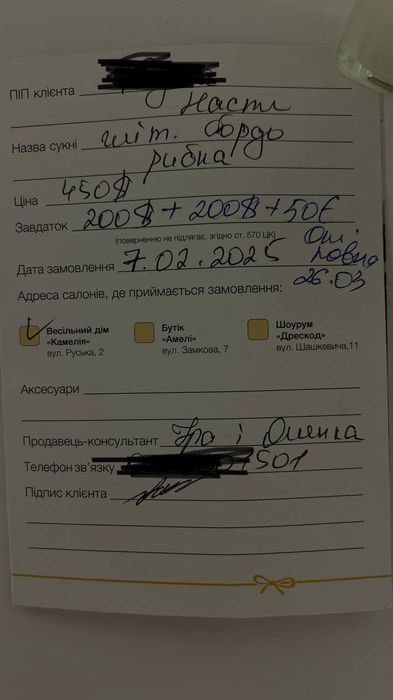 ПІП клієнта
Насті
Назва сукні шіт. бордо
рибка
Ціна 450$
Завдаток 200$ + 200$ + 50€
(поверненню не підлягає, згідно ст. 570 ЦК)
Дата замовлення 7.02.2025
26.03
Адреса салонів, де приймається замовлення:
Весільний дім
«Камелія»
вул. Руська, 2
Бутік
«Амелі»
вул. Замкова, 7
Шоурум
«Дрескод»
вул. Шашкевича,11
Аксесуари
Продавець-консультант Іра і Оленка
Телефон зв'язку 501
Підпис клієнта